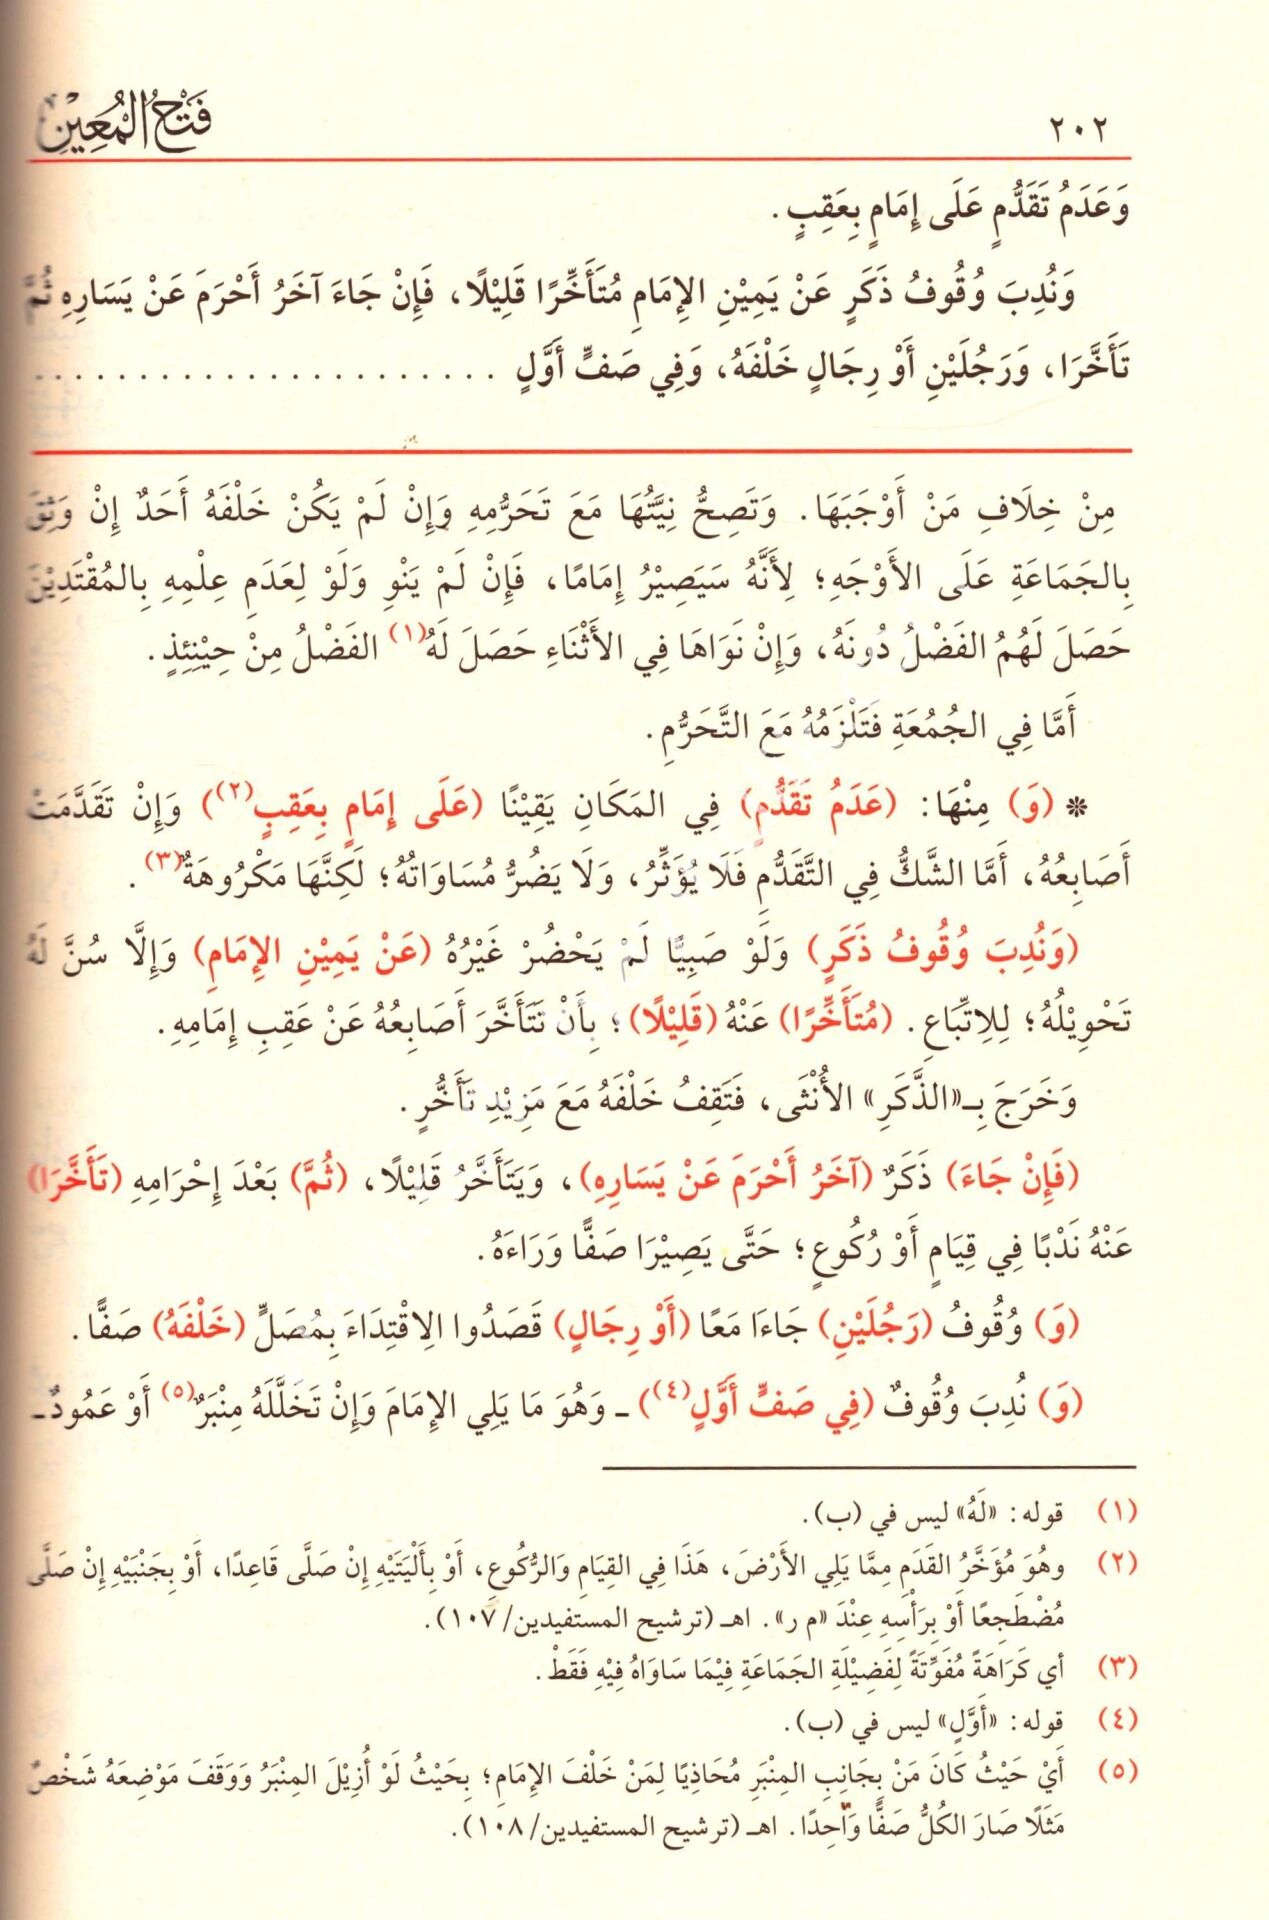 ٢٠٢
فَتْحُ المُعِيْنِ
وَعَدَمُ تَقَدُّمٍ عَلَى إِمَامٍ بِعَقِبٍ.
وَنُدِبَ وُقُوفُ ذَكَرٍ عَنْ يَمِيْنِ الإِمَامِ مُتَأَخِّرًا قَلِيْلًا، فَإِنْ جَاءَ آخَرُ أَحْرَمَ عَنْ يَسَارِهِ ثُمَّ
تَأَخَّرَا، وَرَجُلَيْنِ أَوْ رِجَالٍ خَلْفَهُ، وَفِي صَفٍّ أَوَّلٍ . . . . . . . . . . . . . . . . . . . . . . .
مِنْ خِلَافِ مَنْ أَوْجَبَهَا. وَتَصِحُّ نِيَّتُهَا مَعَ تَحَرُّمِهِ وَإِنْ لَمْ يَكُنْ خَلْفَهُ أَحَدٌ إِنْ وَثِقَ
بِالجَمَاعَةِ عَلَى الأَوْجَهِ؛ لِأَنَّهُ سَيَصِيْرُ إِمَامًا، فَإِنْ لَمْ يَنْوِ وَلَوْ لِعَدَمِ عِلْمِهِ بِالمُقْتَدِيْنَ
حَصَلَ لَهُمُ الفَضْلُ دُونَهُ، وَإِنْ نَوَاهَا فِي الأَثْنَاءِ حَصَلَ لَهُ(١) الفَضْلُ مِنْ حِيْنِئِذٍ.
أَمَّا فِي الجُمُعَةِ فَتَلْزَمُهُ مَعَ التَّحَرُّمِ.
* (وَ) مِنْهَا: (عَدَمُ تَقَدُّمٍ) فِي المَكَانِ يَقِيْنًا (عَلَى إِمَامٍ بِعَقِبٍ(٢)) وَإِنْ تَقَدَّمَتْ
أَصَابِعُهُ، أَمَّا الشَّكُّ فِي التَّقَدُّمِ فَلَا يُؤَثِّرُ، وَلَا يَضُرُّ مُسَاوَاتُهُ؛ لَكِنَّهَا مَكْرُوهَةٌ(٣).
(وَنُدِبَ وُقُوفُ ذَكَرٍ) وَلَوْ صَبِيًّا لَمْ يَحْضُرْ غَيْرُهُ (عَنْ يَمِيْنِ الإِمَامِ) وَإِلَّا سُنَّ لَهُ
تَحْوِيْلُهُ؛ لِلِاتِّبَاعِ. (مُتَأَخِّرًا) عَنْهُ (قَلِيْلًا)؛ بِأَنْ تَتَأَخَّرَ أَصَابِعُهُ عَنْ عَقِبِ إِمَامِهِ.
وَخَرَجَ بِـ«الذَّكَرِ» الأُنْثَى، فَتَقِفُ خَلْفَهُ مَعَ مَزِيْدِ تَأَخُّرٍ.
(فَإِنْ جَاءَ) ذَكَرٌ (آخَرُ أَحْرَمَ عَنْ يَسَارِهِ)، وَيَتَأَخَّرُ قَلِيْلًا، (ثُمَّ) بَعْدَ إِحْرَامِهِ (تَأَخَّرَا)
عَنْهُ نَدْبًا فِي قِيَامٍ أَوْ رُكُوعٍ؛ حَتَّى يَصِيْرَا صَفًّا وَرَاءَهُ.
(وَ) وُقُوفُ (رَجُلَيْنِ) جَاءَا مَعًا (أَوْ رِجَالٍ) قَصَدُوا الِاقْتِدَاءَ بِمُصَلٍّ (خَلْفَهُ) صَفًّا.
(وَ) نُدِبَ وُقُوفٌ (فِي صَفٍّ أَوَّلٍ(٤)) ـ وَهُوَ مَا يَلِي الإِمَامَ وَإِنْ تَخَلَّلَهُ مِنْبَرٌ(٥) أَوْ عَمُودٌـ
(١) قوله: «لَهُ» ليس في (ب).
(٢) وهُوَ مُؤَخَّرُ القَدَمِ مِمَّا يَلِي الأَرْضَ، هَذَا فِي القِيَامِ وَالرُّكُوعِ، أَوْ بِأَلْيَتَيْهِ إِنْ صَلَّى قَاعِدًا، أَوْ بِجَنْبَيْهِ إِنْ صَلَّى
مُضْطَجِعًا أَوْ بِرَأْسِهِ عِنْدَ «م ر». اهـ (ترشيح المستفيدين/ ١٠٧).
(٣) أي كَرَاهَةً مُفَوِّتَةً لِفَضِيْلَةِ الجَمَاعَةِ فِيْمَا سَاوَاهُ فِيْهِ فَقَطْ.
(٤) قوله: «أَوَّلٍ» ليس في (ب).
(٥) أَيْ حَيْثُ كَانَ مَنْ بِجَانِبِ المِنْبَرِ مُحَاذِيًا لِمَنْ خَلْفَ الإِمَامِ؛ بِحَيْثُ لَوْ أُزِيْلَ المِنْبَرُ وَوَقَفَ مَوْضِعَهُ شَخْصٌ
مَثَلًا صَارَ الكُلُّ صَفًّا وَاحِدًا. اهـ (ترشيح المستفيدين/ ١٠٨).